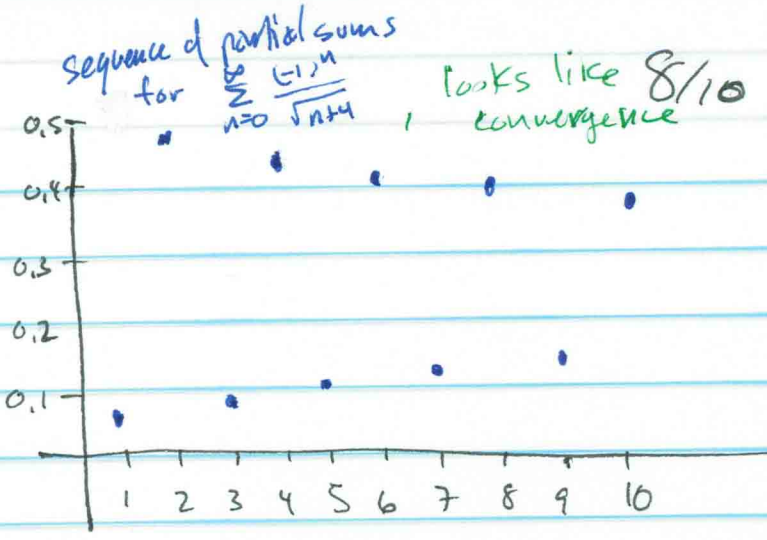 sequence of partial sums
for ∞ (-1)^n
Σ ―――
n=0 √n+4
, looks like 8/10
convergence
0.5
0.4
0.3
0.2
0.1
1 2 3 4 5 6 7 8 9 10